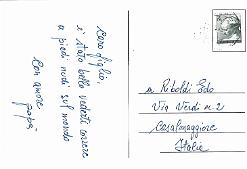 Caro figlio,
è stato bello vederti correre
a piedi nudi sul mondo
Con amore
papà
Riboldi Edo
Via Verdi n. 2
Casalmaggiore
Italia